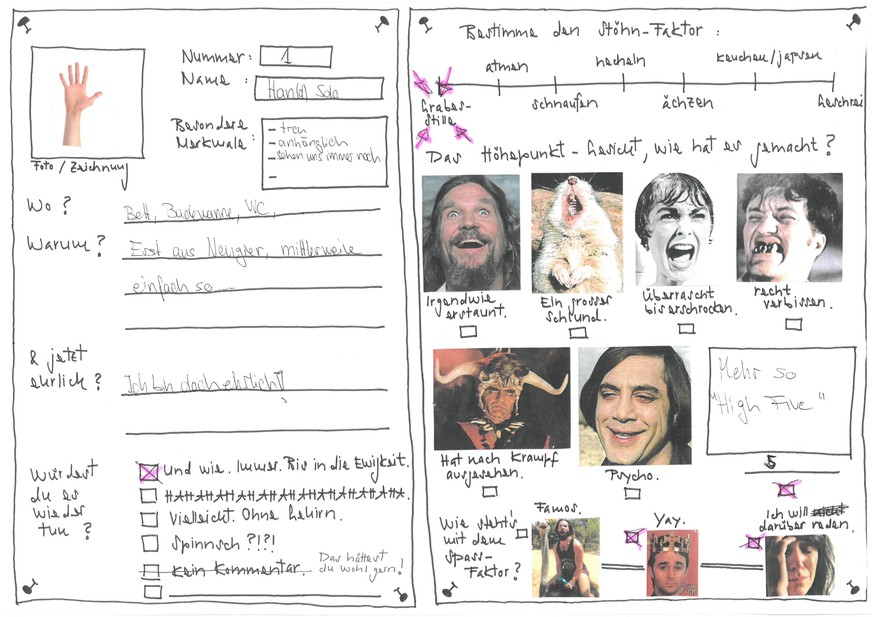 Nummer: 1
Name: Han(d) Solo
Besondere Merkmale:
- treu
- anhänglich
- sehen uns immer noch
-
Foto / Zeichnung
Wo? Bett, Badewanne, WC,
Warum? Erst aus Neugier, mittlerweile
einfach so
& jetzt
ehrlich? Ich bin doch ehrlich!
Würdest
du es
wieder
tun?
Und wie. Immer. Bis in die Ewigkeit.
HAHAHAHAHAHAHAHAHAHA.
Vielleicht. Ohne Gehirn.
Spinnsch?!?!
Kein Kommentar. Das hättest
du wohl gern!
Bestimme den Stöhn-Faktor:
atmen hecheln keuchen/japsen
Grabes-
stille schnaufen ächzen Geschrei
Das Höhepunkt-Gesicht, wie hat es gemacht?
Irgendwie
erstaunt.
Ein grosser
Schlund.
Überrascht
bis erschrocken.
recht
verbissen.
Hat nach Krampf
ausgesehen.
Psycho.
Mehr so
"High Five"
Wie steht's
mit dem
Spass-
Faktor?
Famos.
Yay.
Ich will nicht
darüber reden.